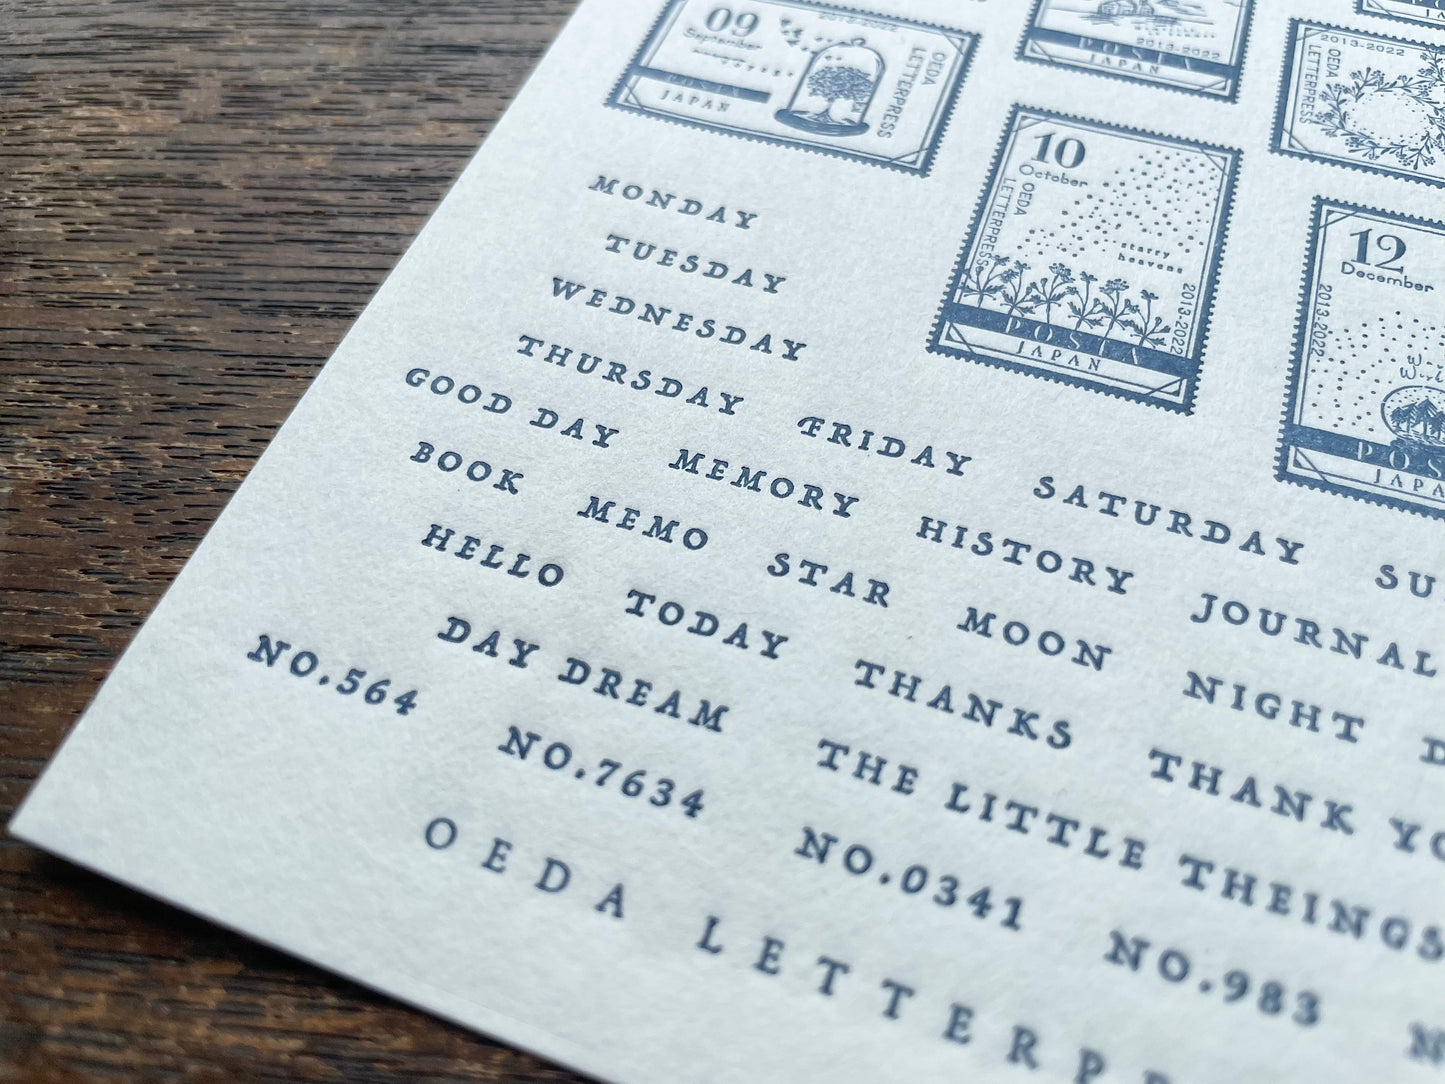 09
September
2013-2022
OEDA
LETTERPRESS
JAPAN
POSTA
2013-2022
JAPAN
2013-2022
OEDA
LETTERPRESS
10
October
OEDA
LETTERPRESS
starry
heavens
2013-2022
POSTA
JAPAN
12
December
2013-2022
MONDAY
TUESDAY
WEDNESDAY
THURSDAY FRIDAY SATURDAY
GOOD DAY MEMORY HISTORY JOURNAL
BOOK MEMO STAR MOON NIGHT
HELLO TODAY THANKS THANK
DAY DREAM THE LITTLE THEINGS
NO.564 NO.7634 NO.0341 NO.983
OEDA LETTERP